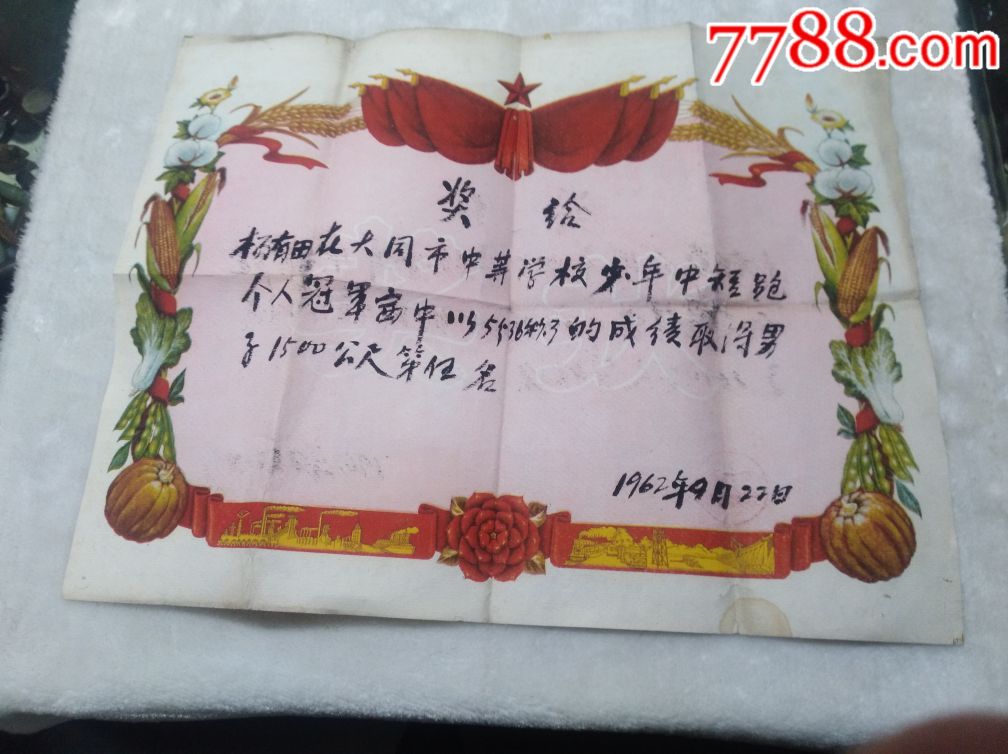 7788.com
奖给
杨有田在大同市中等学校少年中短跑
个人冠军赛中以5536秒的成绩取得男
子1500公尺第伍名
1962年9月22日